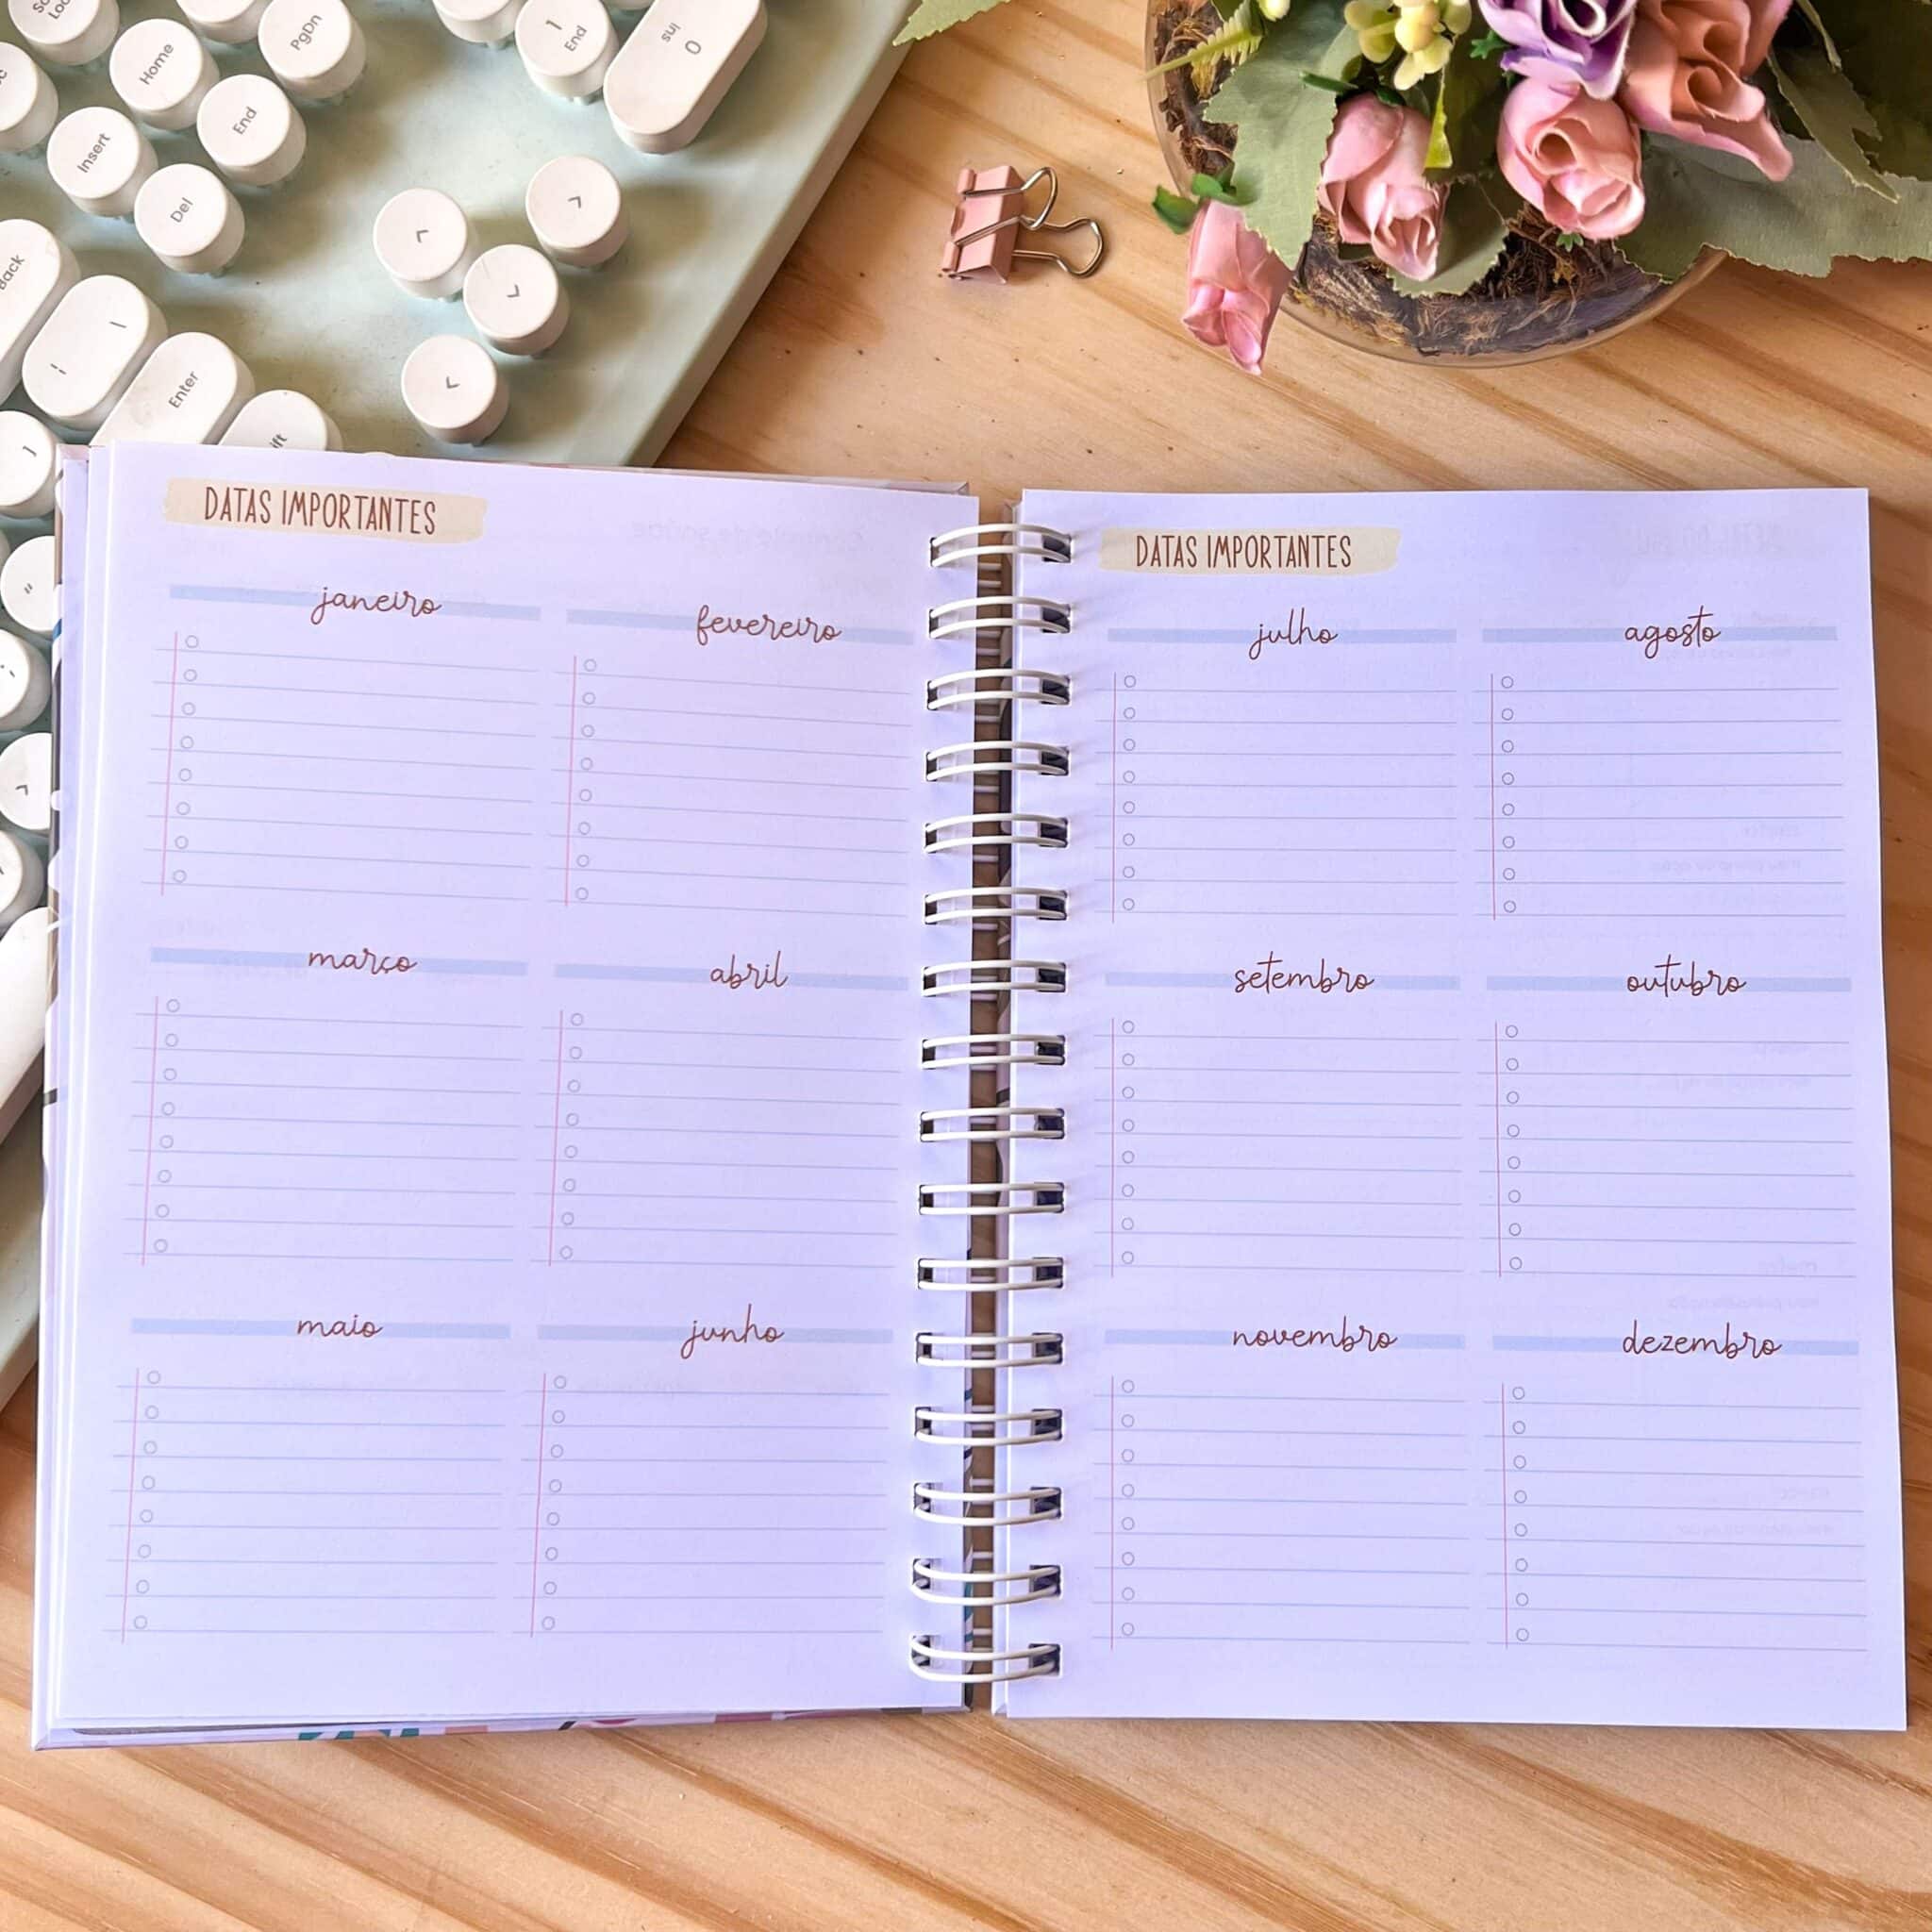 Home
PgDn
1
End
Ins
0
Insert
End
Del
Back
Enter
DATAS IMPORTANTES
janeiro
fevereiro
março
abril
maio
junho
DATAS IMPORTANTES
julho
agosto
setembro
outubro
novembro
dezembro